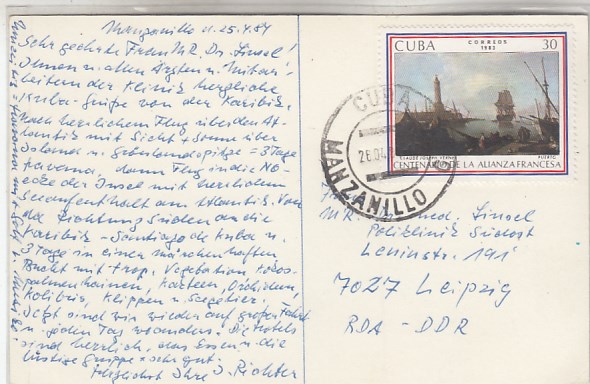 Manzanillo d. 25.4.84
Sehr geehrte Frau MR. Dr. Linsel!
Ihnen u. allen Ärzten u. Mitar-
beitern der Klinik herzliche
Kuba-Grüße von der Karibik.
Nach herrlichem Flug über den At-
lantik mit Sicht u. Sonne über
Island u. Grönlandspitze = 3 Tage
Havanna, dann Flug in die NO-
ecke der Insel mit herrlichem
aufenthalt am Atlantik. Von
da Richtung Süden an die
Karibik - Santiago de Kuba u.
3 Tage in einer märchenhaften
Bucht mit trop. Vegetation, Kokos-
palmenhainen, Kakteen, Orchideen,
Kolibris, Klippen u. Seegetier.
Jetzt sind wir wieder auf großer Fahrt
u. jeden Tag woanders. Die Hotels
sind herrlich, das Essen u. die
lustige Gruppe sehr gut.
Herzlichst Ihre J. Richter
CUBA CORREOS 30
1983
CLAUDE JOSEPH VERNET PUERTO
CENTENARIO DE LA ALIANZA FRANCESA
CUBA
26.04
MANZANILLO
MR. med. Linsel
Poliklinik Südost
Leninstr. 191
7027 Leipzig
RDA - DDR